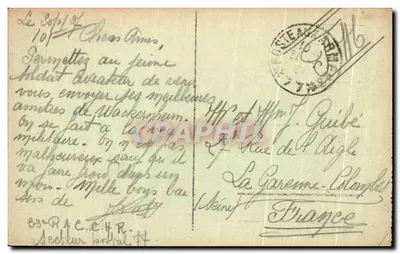 Chers Amis,
Permettez au jeune
soldat aviateur de venir
vous envoyer ses meilleures
amitiés de Wackernheim.
On se fait à la vie
militaire. On n'est pas
malheureux sauf qu'il
va faire froid dans un
mois. Mille bons bai
sers de
33e R A C. C. H. R.
Secteur postal 77
POSTE AUX ARMEES
77
Mr et Mme J. Guibé
27 Rue de l'Aigle
La Garenne-Colombes
(Seine)
France
CPARAMA